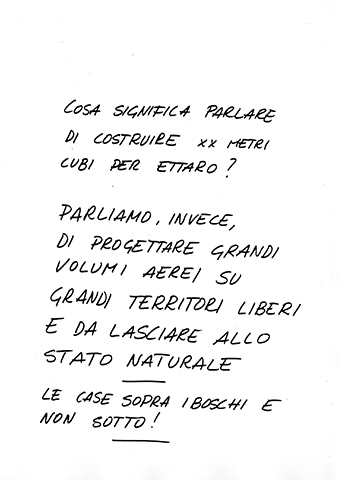 COSA SIGNIFICA PARLARE
DI COSTRUIRE XX METRI
CUBI PER ETTARO?
PARLIAMO, INVECE,
DI PROGETTARE GRANDI
VOLUMI AEREI SU
GRANDI TERRITORI LIBERI
E DA LASCIARE ALLO
STATO NATURALE
LE CASE SOPRA I BOSCHI E
NON SOTTO!